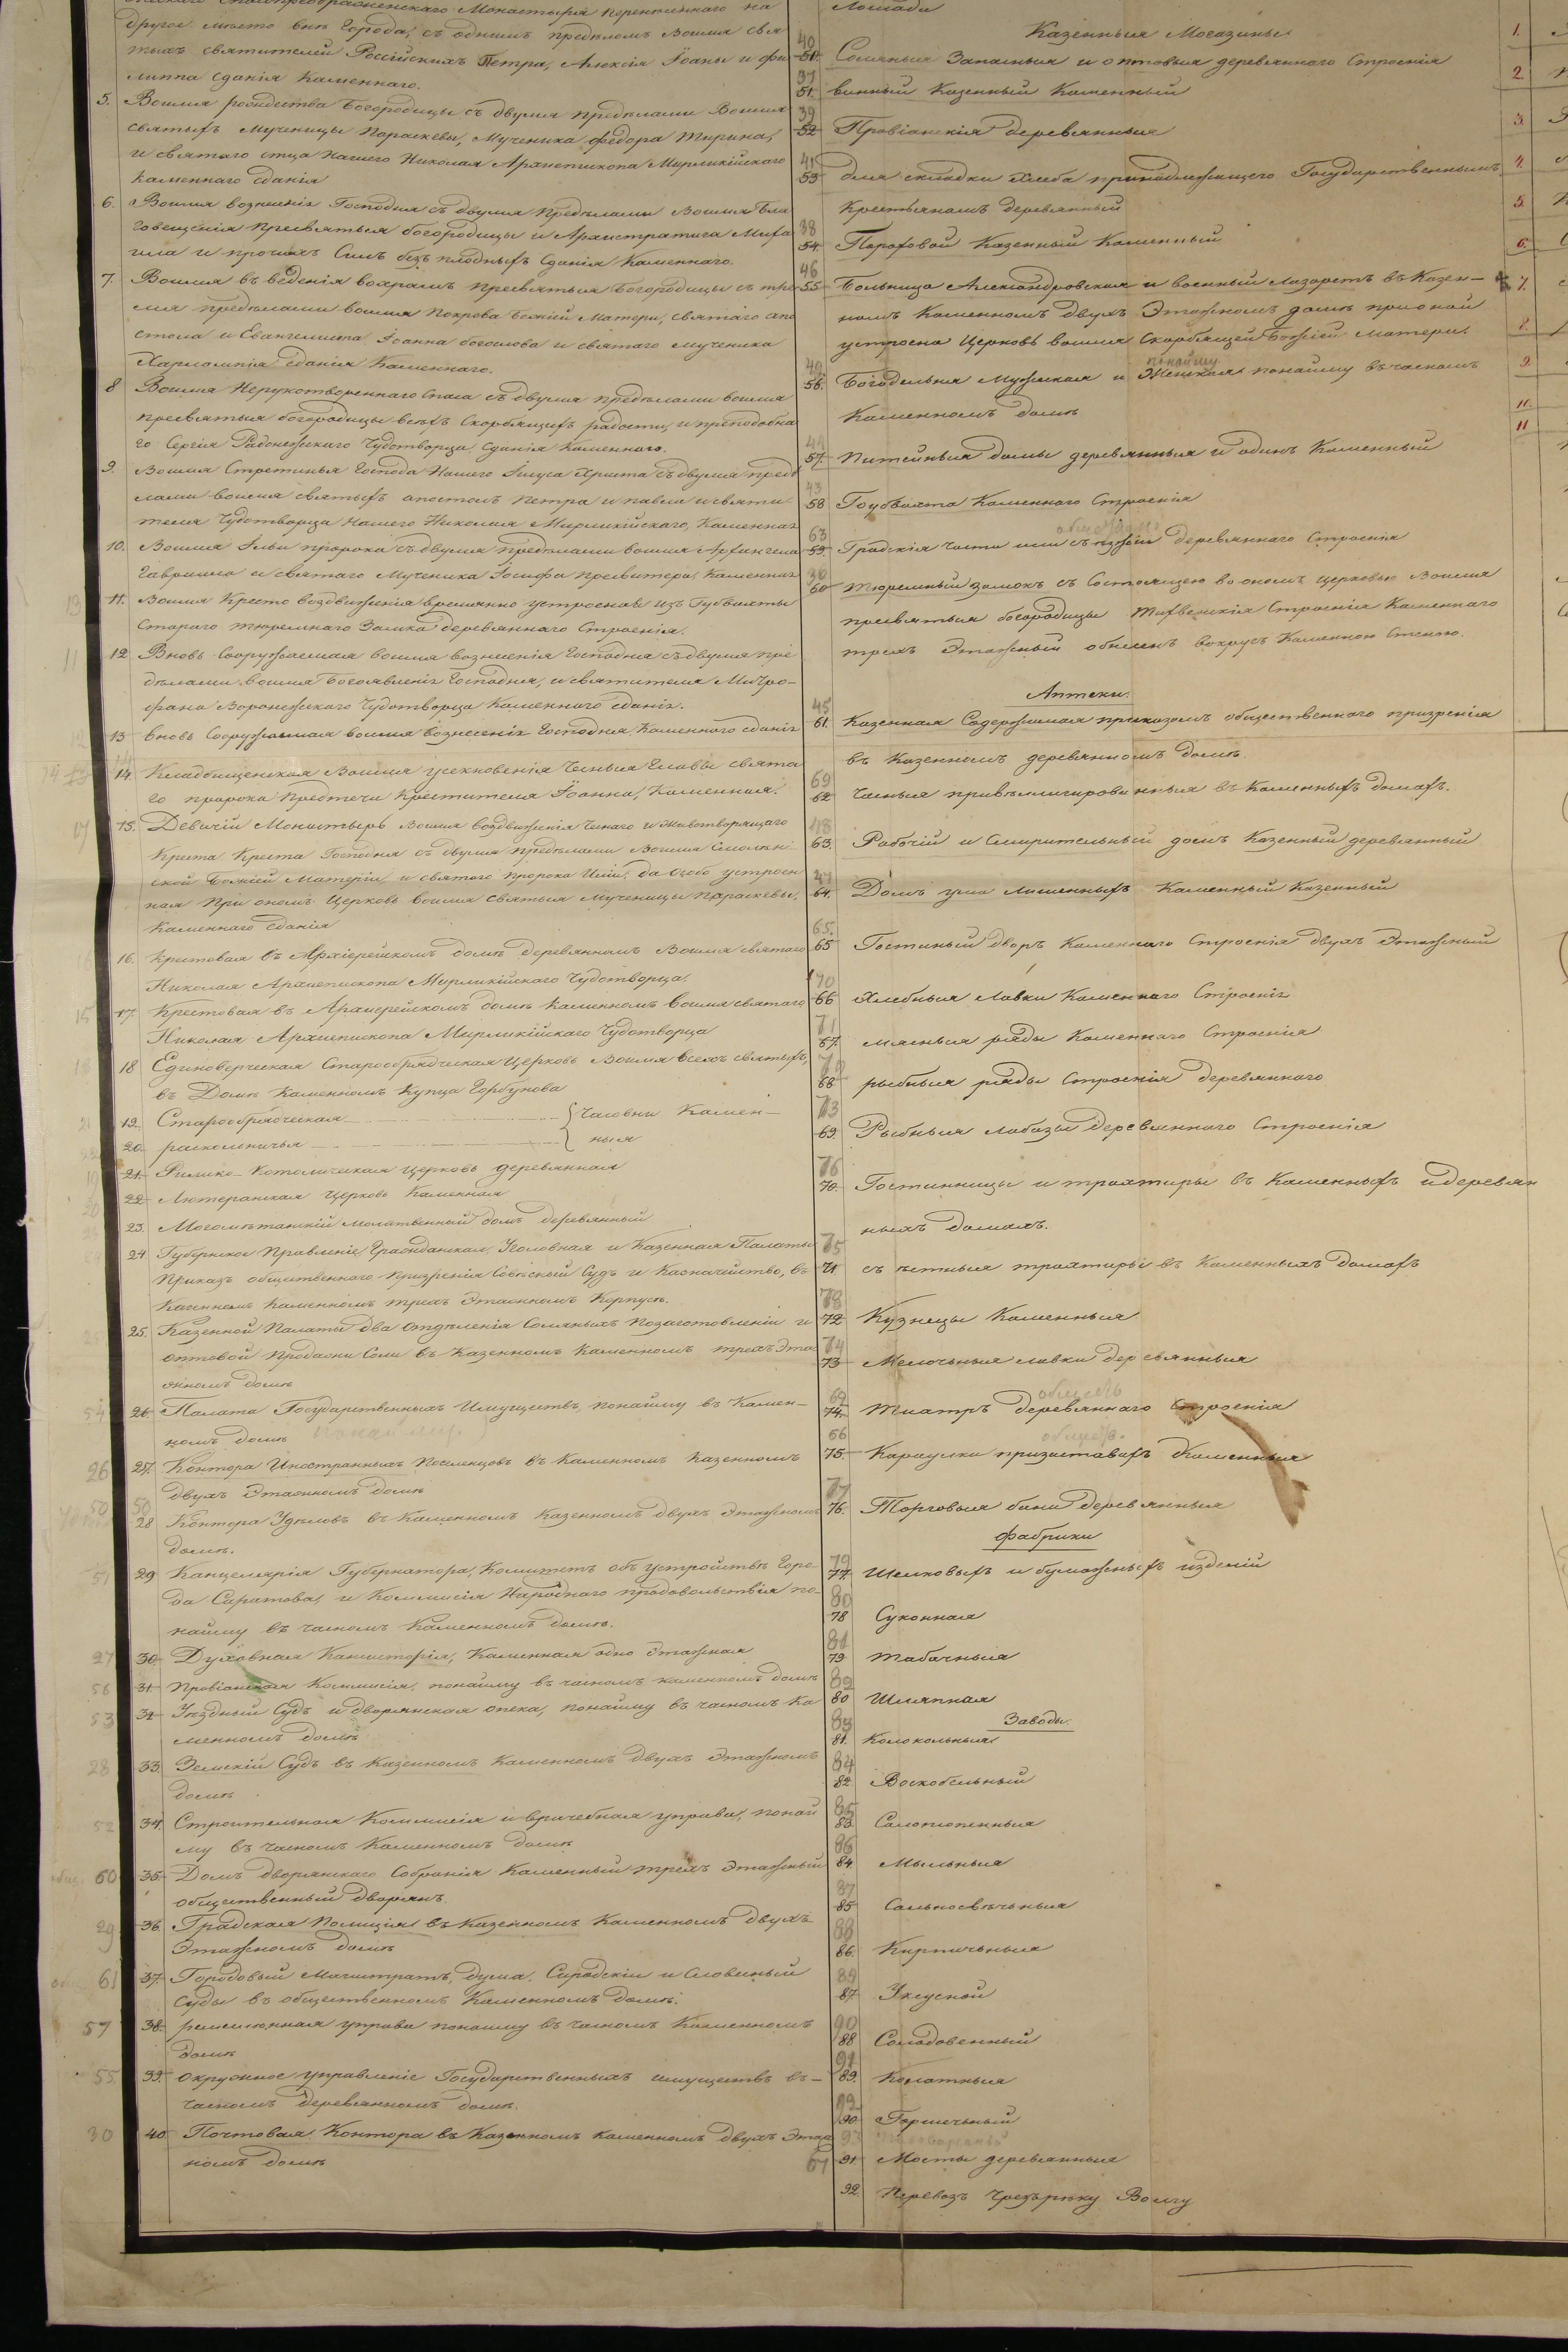 Спасопреображенскаго Монастыря перенесеннаго на
другое место вне Города, съ однимъ пределомъ Воимя свя
тыхъ святителей Россійскихъ Петра, Алексія Іоаны и фи
липпа зданія Каменнаго.
5. Воимя рождества Богородицы съ двумя пределами Воимя
святыхъ Мученицы Пораскевы, Мученика федора Тирина,
и святаго отца Нашего Николая Архиепископа Мирликійскаго
каменнаго зданія
6. Воимя вознесенія Господня съ двумя пределами Воимя Бла
говещенія пресвятыя богородицы и Архистратига Миха
ила и прочихъ Силъ безъ плодныхъ зданія Каменнаго.
7. Воимя въ веденія вохрамъ пресвятыя Богородицы съ тре
мя пределами воимя Покрова Божіей Матери, святаго апо
стола и Евангелиста Іоанна богослова и святаго мученика
Харлампія зданія Каменнаго.
8 Воимя Нерукотвореннаго Спаса съ двумя пределами воимя
пресвятыя богородицы всехъ Скорбящихъ радости, и преподобна
го Сергія Радонежскаго Чудотворца зданія Каменнаго.
9. Воимя Стретинья Господа Нашего Іисуса Христа съ двумя преде
лами воимя святыхъ апостолъ Петра и павла и святи
теля Чудотворца Нашего Николая Мирликійскаго, Каменная
10. Воимя Ильи пророка съ двумя пределами воимя Архангела
Гавриила и святаго Мученика Іосифа пресвитера, Каменная
11. Воимя Кресто воздвиженія временно устроенной изъ Губвахты
Стараго тюремнаго Замка деревяннаго Строенія.
12 Вновь Сооружаемая воимя вознесенія Господня съ двумя пре
делами воимя Богоявленія Господня, и святителя Митро-
фана Воронежскаго Чудотворца Каменнаго зданія.
13 Вновь Сооружаемая воимя вознесенія Господня Каменнаго зданія
14. Кладбищенская Воимя усекновенія Честныя Главы свята
го пророка Предтечи Крестителя Іоанна, Каменная.
15. Девичій Монастырь Воимя воздвиженія Чеснаго и Животворящаго
Креста Креста Господня съ двумя пределами Воимя Смолен
ской Божіей Матери, и святаго пророка Иліи, да особо устроен
ная при ономъ Церковь воимя святыя Мученицы Параскевы,
Каменнаго зданія
16. Крестовая въ Архіерейскомъ доме деревянномъ Воимя святаго
Николая Архиепископа Мирликійскаго Чудотворца.
17. Крестовая въ Архиерейскомъ доме каменномъ Воимя святаго
Николая Архиепископа Мирликійскаго Чудотворца
18 Единоверческая Старообрядческая Церковь Воимя всехъ святыхъ,
въ Доме Каменномъ Купца Горбунова
19. Старообрядческая { Часовни Камен-
20. раскольничья ныя
21. Римско-Католическая церковь деревянная
22. Лютеранская Церковь Каменная
23. Могометанскій молитвенный домъ деревянный
24 Губернское Правленіе, Гражданская, Уголовная и Казенная Палаты
Приказъ общественнаго призренія Совесный Судъ и Казначейство, въ
казенномъ каменномъ трехъ Этажномъ Корпусе.
25. Казенной Палаты два отделенія Соляныхъ Позаготовленіи и
оптовой продажи Соли въ Казенномъ Каменномъ трехъ Эта
жномъ доме
26. Палата Государственныхъ Имуществъ, понайму въ Камен-
номъ доме понайму
27. Контора Иностранныхъ Поселенцовъ въ Каменномъ Казенномъ
двухъ Этажномъ доме
28 Контора Уделовъ въ Каменномъ Казенномъ двухъ Этажномъ
доме.
29 Канцелярія Губернатора, Комитетъ объ устройстве Горо-
да Саратова, и Коммисія Народнаго продовольствія по-
найму въ часномъ Каменномъ доме.
30 Духовная Консисторія, Каменная одно Этажная
31. Провіанская Коммисія, понайму въ часномъ каменномъ доме
32. Уездный Судъ и дворянская опека, понайму въ часномъ Ка
менномъ доме
33. Земскій Судъ въ Казенномъ Каменномъ двухъ Этажномъ
доме
34. Строительная Коммисія и врачебная управа, понай
му въ часномъ Каменномъ доме
35. Домъ дворянскаго Собранія Каменный трехъ Этажный
общественный дворянъ.
36. Градская Полиція въ Казенномъ Каменномъ двухъ
Этажномъ доме
37. Городовый Магистратъ, дума, Сиродскій и Словесный
Суды въ общественномъ Каменномъ доме.
38. ремесленная управа понайму въ часномъ Каменномъ
доме
39. Окружное управленіе Государственныхъ имуществъ въ-
часномъ деревянномъ доме.
40 Почтовая Контора въ Казенномъ каменномъ двухъ Этаж
номъ доме
Лошади
Казенныя Могазины
50. Соляныя Запасныя и оптовыя деревяннаго Строенія
51. винный Казенный Каменный
52 Провіанскія деревянныя
53 для складки Хлеба принадлежащего Государственнымъ
Крестьянамъ деревянный
54. Пороховой Казенный Каменный
55 Больница Александровская и военный Лазаретъ въ Казен-
номъ Каменномъ двухъ Этажномъ доме при оной
устроена Церковь воимя Скорбящей Божіей Матери.
понайму
56. Богодельня Мужеская и Женская понайму въ часномъ
Каменномъ доме
57. Питейныя домы деревянныя и одинъ Каменный
58 Гоубвахта Каменнаго Строенія
59. Градскія части или съезжіи деревяннаго Строенія
60 Тюремный замокъ съ Состоящею во ономъ церковью Воимя
пресвятыя богородицы Тихвенскія Строенія Каменнаго
трехъ Этажный обнесенъ вокругъ Каменною Стеною.
Аптеки.
61. Казенная Содержимая приказомъ общественнаго призренія
въ Казенномъ деревянномъ доме.
62 Часныя привеллигированныя въ Каменныхъ домахъ.
63. Рабочій и Смирительный домъ Казенный деревянный
64. Домъ ума лишенныхъ Каменный Казенный
65 Гостиный дворъ Каменнаго Строенія двухъ Этажный
66 Хлебныя Лавки Каменнаго Строенія
67. мясныя ряды Каменнаго Строенія
68 рыбныя ряды Строенія деревяннаго
69. Рыбныя Лабазы деревяннаго Строенія
70. Гостинницы и трахтиры въ Каменныхъ и деревян
ныхъ домахъ.
71. съ естныя трахтиры въ Каменныхъ домахъ
72 Кузнецы Каменныя
73 Мелочныя лавки деревянныя
74. Тиатръ деревяннаго Строенія
75. Караулки призаставахъ Каменныя
76. Торговыя бани деревянныя
Фабрики
77. Шелковыхъ и бумажныхъ изделій
78 Суконная
79 Табачныя
80 Шляпная
Заводы.
81. Колокольныя
82. Воскобельный
83. Салотопенныя
84. Мыльныя
85 Сальносвечьныя
86. Кирпичьныя
87. Уксусной
88 Солодовенный
89. Канатныя
90 Горшечьный
91 Мосты деревянныя
92. Перевозъ чрезъ реку Волгу
1.
2
3.
4.
5.
6.
7.
8.
9.
10.
11